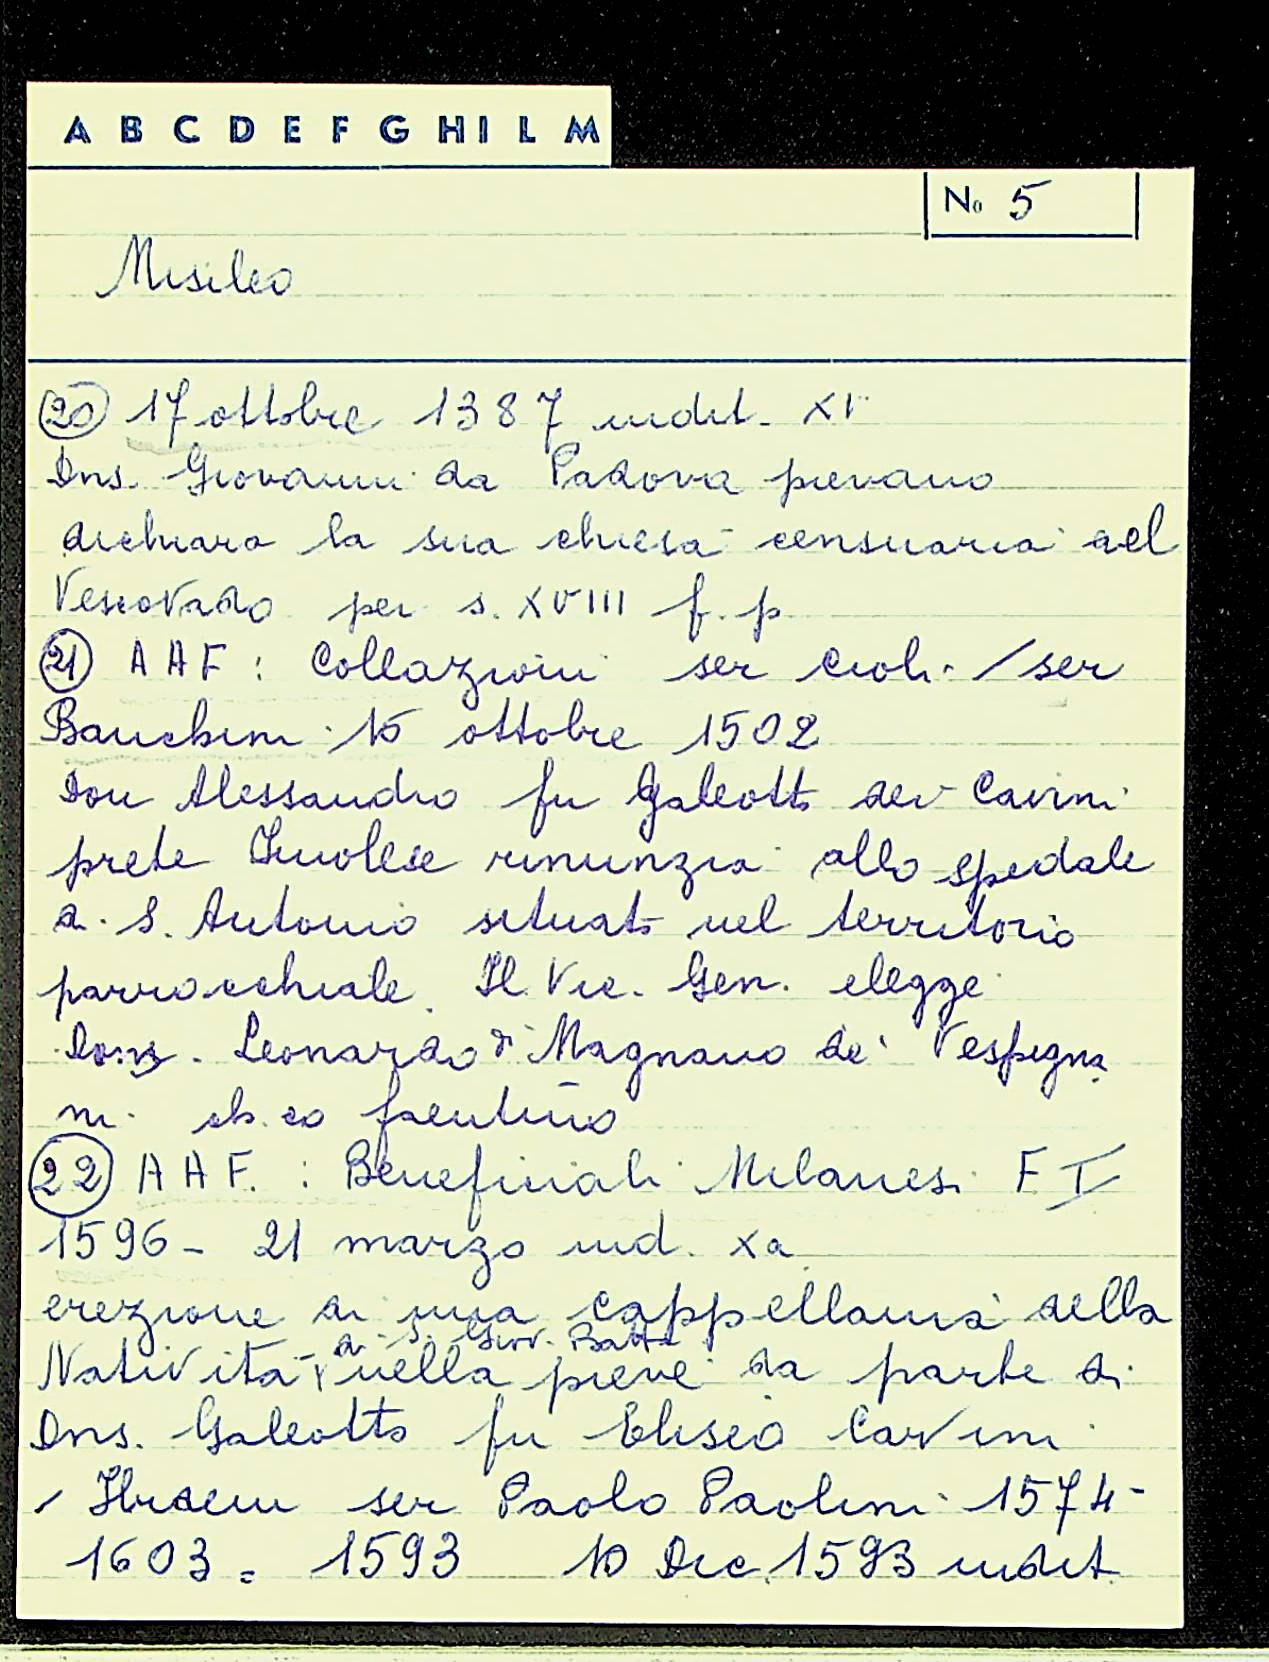 A B C D E F G H I L M
No 5
Misileo
20 17 ottobre 1387 indit. XI
Dns. Giovanni da Padova pievano
dichiara la sua chiesa censuaria del
Vescovado per s. XVIII f. p.
21 AAF: Collazioni ser Cioli / ser
Banchini 10 ottobre 1502
Don Alessandro fu Galeotto dei Cavini
prete Imolese rinunzia allo spedale
di S. Antonio situato nel territorio
parrocchiale. Il Vic. Gen. elegge
Leonardo di Magnano de' Vespigna
ni ch.co faentino
22 AAF.: Beneficiali Milanesi F I
1596 - 21 marzo ind. Xa
erezione di una cappellania della
di S. Giov. Batta
Natività nella pieve da parte di
Dns. Galeotto fu Eliseo Cavini
/ Ibidem ser Paolo Paolini 1574-
1603 = 1593 10 Dic. 1593 indit